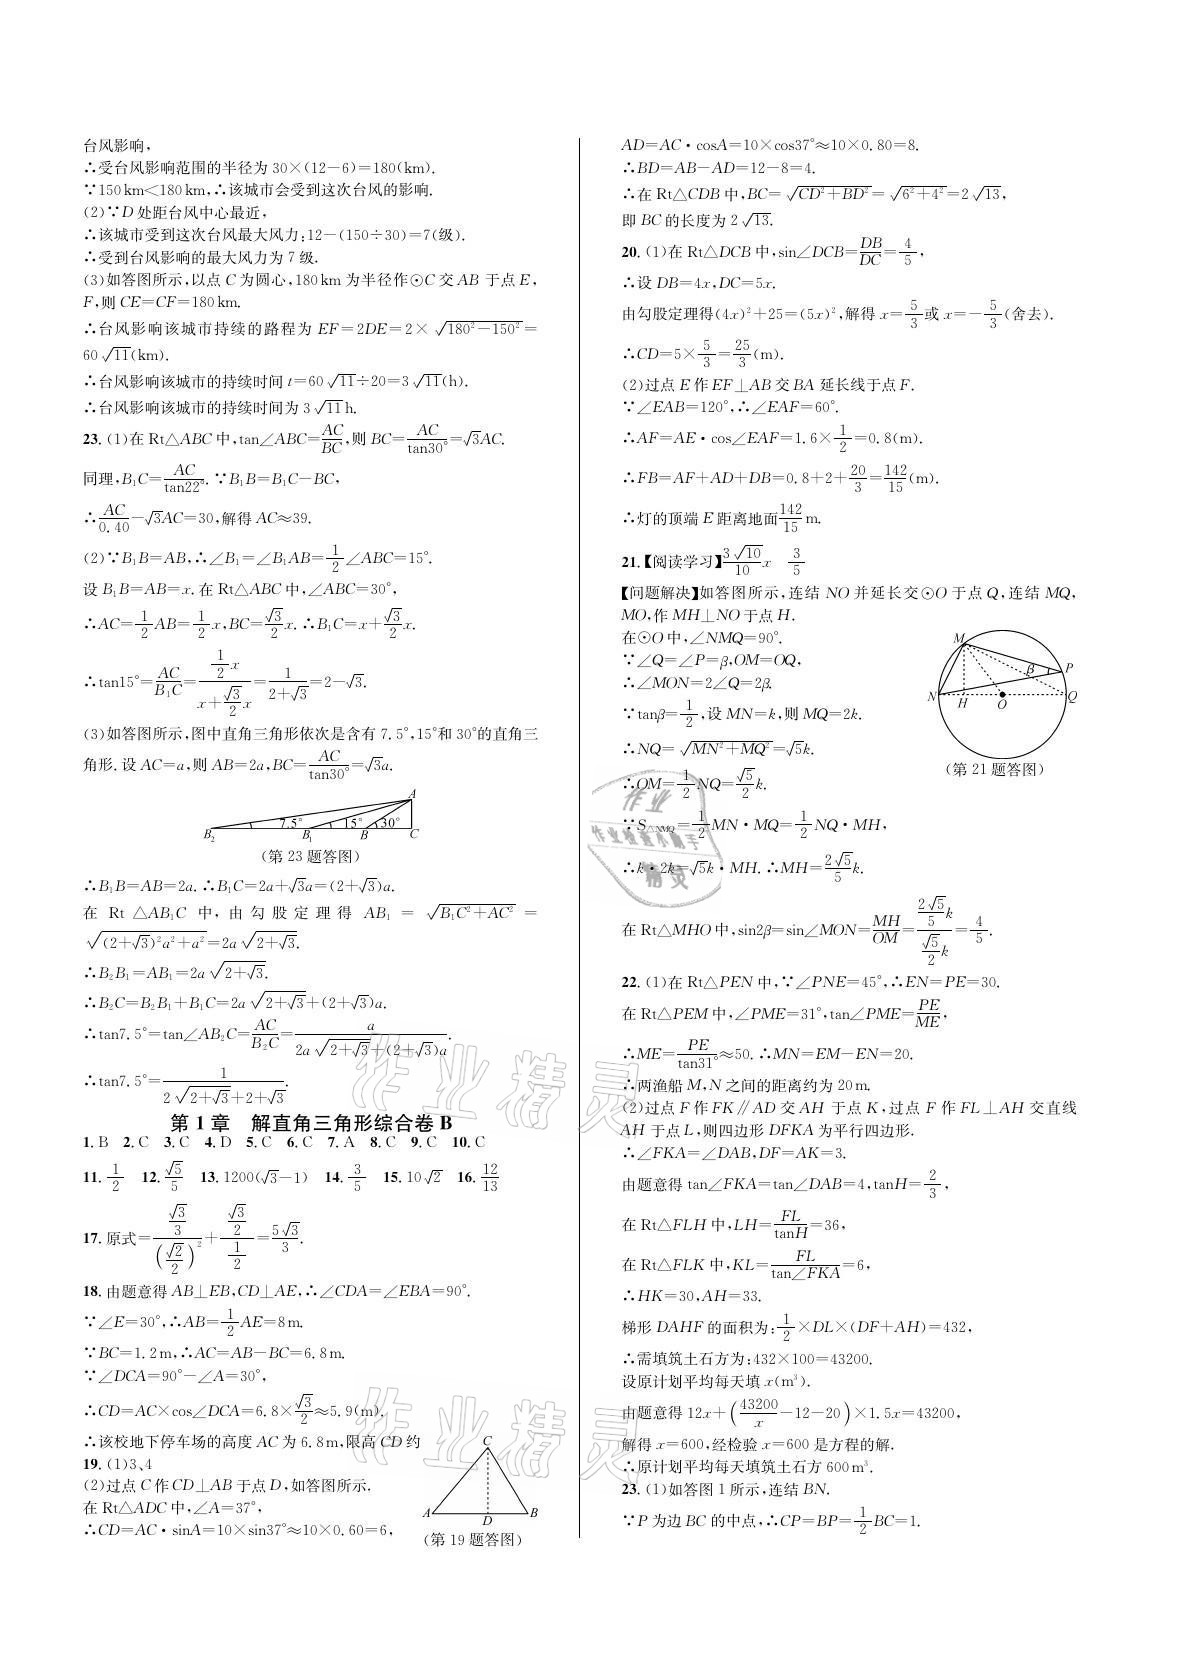 台风影响，
∴受台风影响范围的半径为 30×(12−6)=180(km).
∵150 km<180 km,∴该城市会受到这次台风的影响.
(2)∵D 处距台风中心最近，
∴该城市受到这次台风最大风力:12−(150÷30)=7(级).
∴受到台风影响的最大风力为 7 级.
(3)如答图所示,以点 C 为圆心,180 km 为半径作⊙C 交 AB 于点 E,
F,则 CE=CF=180 km.
∴台风影响该城市持续的路程为 EF=2DE=2×√(180²−150²)=
60√11(km).
∴台风影响该城市的持续时间 t=60√11÷20=3√11(h).
∴台风影响该城市的持续时间为 3√11 h.
23. (1)在 Rt△ABC 中,tan∠ABC=AC/BC,则 BC=AC/tan30°=√3AC.
同理,B₁C=AC/tan22°.∵B₁B=B₁C−BC,
∴AC/0.40−√3AC=30,解得 AC≈39.
(2)∵B₁B=AB,∴∠B₁=∠B₁AB=1/2∠ABC=15°.
设 B₁B=AB=x.在 Rt△ABC 中,∠ABC=30°,
∴AC=1/2AB=1/2x,BC=√3/2x.∴B₁C=x+√3/2x.
∴tan15°=AC/B₁C=(1/2x)/(x+√3/2x)=1/(2+√3)=2−√3.
(3)如答图所示,图中直角三角形依次是含有 7.5°,15°和 30°的直角三
角形.设 AC=a,则 AB=2a,BC=AC/tan30°=√3a.
A
7.5° 15° 30°
B₂ B₁ B C
(第 23 题答图)
∴B₁B=AB=2a.∴B₁C=2a+√3a=(2+√3)a.
在 Rt △AB₁C 中,由勾股定理得 AB₁ = √(B₁C²+AC²) =
√((2+√3)²a²+a²)=2a√(2+√3).
∴B₂B₁=AB₁=2a√(2+√3).
∴B₂C=B₂B₁+B₁C=2a√(2+√3)+(2+√3)a.
∴tan7.5°=tan∠AB₂C=AC/B₂C=a/(2a√(2+√3)+(2+√3)a).
∴tan7.5°=1/(2√(2+√3)+2+√3).
第 1 章 解直角三角形综合卷 B
1. B 2. C 3. C 4. D 5. C 6. C 7. A 8. C 9. C 10. C
11. 1/2 12. √5/5 13. 1200(√3−1) 14. 3/5 15. 10√2 16. 12/13
17. 原式=(√3/3)/(√2/2)²+(√3/2)/(1/2)=5√3/3.
18. 由题意得 AB⊥EB,CD⊥AE,∴∠CDA=∠EBA=90°.
∵∠E=30°,∴AB=1/2AE=8 m.
∵BC=1.2 m,∴AC=AB−BC=6.8 m.
∵∠DCA=90°−∠A=30°,
∴CD=AC×cos∠DCA=6.8×√3/2≈5.9(m).
∴该校地下停车场的高度 AC 为 6.8 m,限高 CD 约
19. (1)3、4
(2)过点 C 作 CD⊥AB 于点 D,如答图所示.
在 Rt△ADC 中,∠A=37°,
∴CD=AC·sinA=10×sin37°≈10×0.60=6,
C
A D B
(第 19 题答图)
AD=AC·cosA=10×cos37°≈10×0.80=8.
∴BD=AB−AD=12−8=4.
∴在 Rt△CDB 中,BC=√(CD²+BD²)=√(6²+4²)=2√13,
即 BC 的长度为 2√13.
20. (1)在 Rt△DCB 中,sin∠DCB=DB/DC=4/5,
∴设 DB=4x,DC=5x.
由勾股定理得(4x)²+25=(5x)²,解得 x=5/3或 x=−5/3(舍去).
∴CD=5×5/3=25/3(m).
(2)过点 E 作 EF⊥AB 交 BA 延长线于点 F.
∵∠EAB=120°,∴∠EAF=60°.
∴AF=AE·cos∠EAF=1.6×1/2=0.8(m).
∴FB=AF+AD+DB=0.8+2+20/3=142/15(m).
∴灯的顶端 E 距离地面142/15 m.
21.【阅读学习】3√10/10 x 3/5
【问题解决】如答图所示,连结 NO 并延长交⊙O 于点 Q,连结 MQ,
MO,作 MH⊥NO 于点 H.
在⊙O 中,∠NMQ=90°.
∵∠Q=∠P=β,OM=OQ,
∴∠MON=2∠Q=2β.
∵tanβ=1/2,设 MN=k,则 MQ=2k.
∴NQ=√(MN²+MQ²)=√5k.
∴OM=1/2NQ=√5/2k.
∵S△NMQ=1/2MN·MQ=1/2NQ·MH,
∴k·2k=√5k·MH.∴MH=2√5/5k.
在 Rt△MHO 中,sin2β=sin∠MON=MH/OM=(2√5/5k)/(√5/2k)=4/5.
M
β P
N H O Q
(第 21 题答图)
22. (1)在 Rt△PEN 中,∵∠PNE=45°,∴EN=PE=30.
在 Rt△PEM 中,∠PME=31°,tan∠PME=PE/ME,
∴ME=PE/tan31°≈50.∴MN=EM−EN=20.
∴两渔船 M,N 之间的距离约为 20 m.
(2)过点 F 作 FK∥AD 交 AH 于点 K,过点 F 作 FL⊥AH 交直线
AH 于点 L,则四边形 DFKA 为平行四边形.
∴∠FKA=∠DAB,DF=AK=3.
由题意得 tan∠FKA=tan∠DAB=4,tanH=2/3,
在 Rt△FLH 中,LH=FL/tanH=36,
在 Rt△FLK 中,KL=FL/tan∠FKA=6,
∴HK=30,AH=33.
梯形 DAHF 的面积为:1/2×DL×(DF+AH)=432,
∴需填筑土石方为:432×100=43200.
设原计划平均每天填 x(m³).
由题意得 12x+(43200/x−12−20)×1.5x=43200,
解得 x=600,经检验 x=600 是方程的解.
∴原计划平均每天填筑土石方 600 m³.
23. (1)如答图 1 所示,连结 BN.
∵P 为边 BC 的中点,∴CP=BP=1/2BC=1.
作业精灵
作业精灵
作业
作业检查小助手
精灵